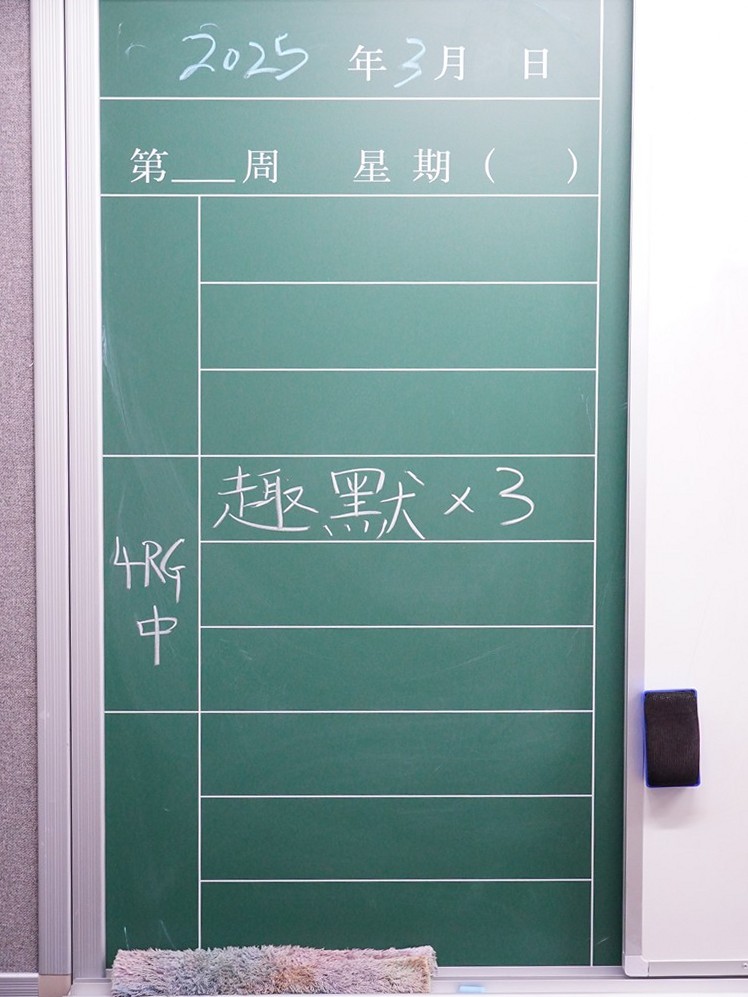 2025 年 3 月 日
第___周 星期( )
趣默×3
4RG
中